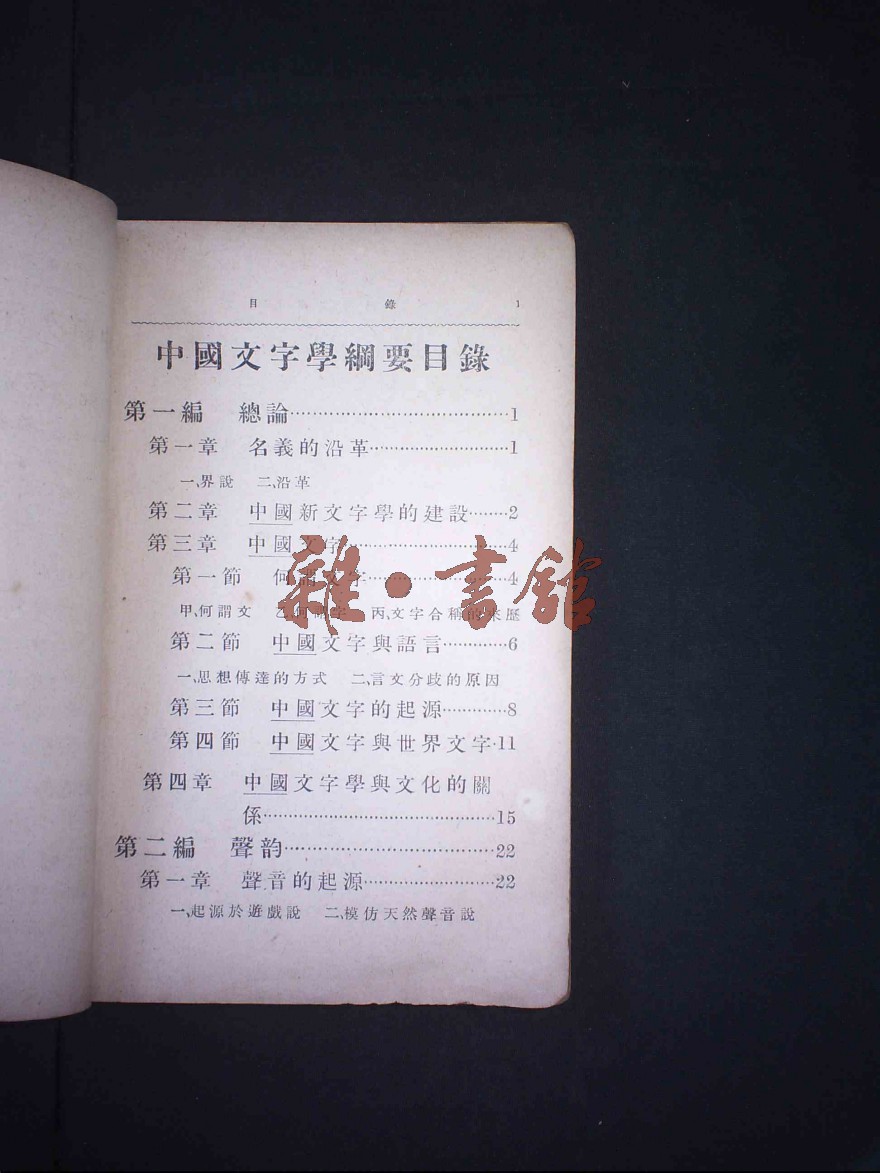 目 錄 1
中國文字學綱要目錄
第一編 總論……………………………1
第一章 名義的沿革……………………1
一、界說 二、沿革
第二章 中國新文字學的建設………2
第三章 中國文字……………………4
第一節 何謂文字……………………4
甲、何謂文 乙、何謂字 丙、文字合稱的來歷
第二節 中國文字與語言…………6
一、思想傳達的方式 二、言文分歧的原因
第三節 中國文字的起源…………8
第四節 中國文字與世界文字·11
第四章 中國文字學與文化的關
係……………………………………15
第二編 聲韵……………………………22
第一章 聲音的起源…………………22
一、起源於遊戲說 二、模仿天然聲音說
雜·書館